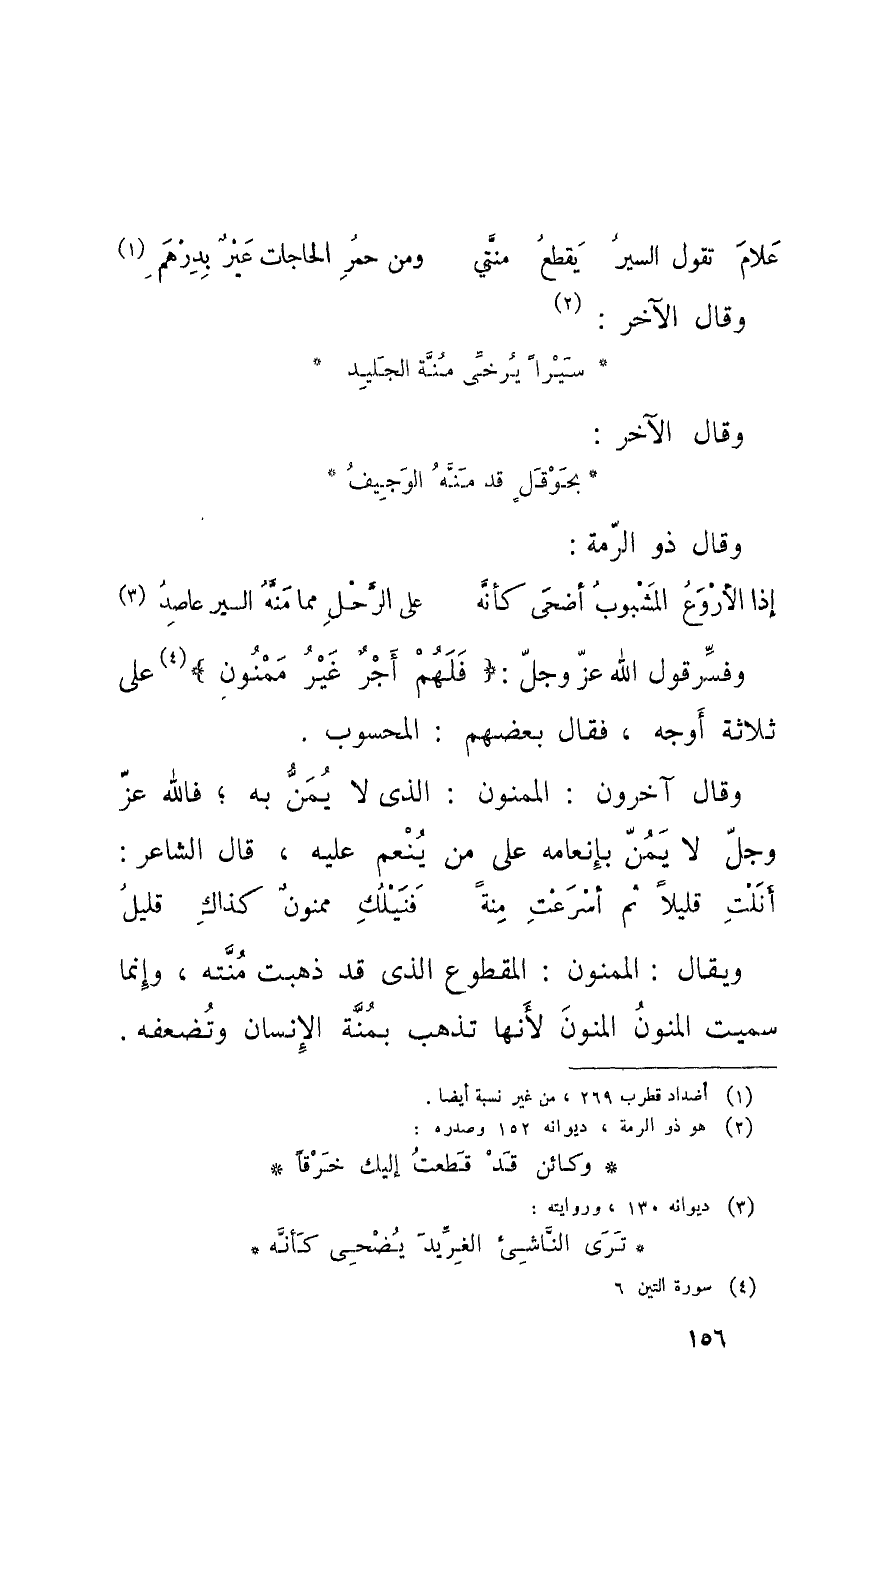 عَلامَ تقول السيرُ يَقطعُ منتَّي ومن حمرُ الحاجات عَيْرٌ بِدِرْهَمِ (١)
وقال الآخر : (٢)
* سَيْراً يُرخىِّ مُنَّة الجَليِد *
وقال الآخر :
* بحَوْقَلٍ قد مَنَّهُ الوَجِيفُ *
وقال ذو الرّمة :
إذا الأرْوَعُ المَشْبوبُ أضحَى كأنَّه على الرَّحْلِ مما مَنَّهُ السير عاصِدُ (٣)
وفسِّر قول الله عزّ وجلّ : ﴿ فَلَهُمْ أَجْرٌ غَيْرُ مَمْنُونٍ ﴾(٤) على
ثلاثة أَوجه ، فقال بعضهم : المحسوب .
وقال آخرون : الممنون : الذى لا يُمَنُّ به ؛ فالله عزّ
وجلّ لا يَمُنّ بإنعامه على من يُنْعِم عليه ، قال الشاعر :
أنَلْتِ قليلاً ثم أسْرَعْتِ مِنةً فَنَيْلُكِ ممنونٌ كذاكِ قليلُ
ويقال : الممنون : المقطوع الذى قد ذهبت مُنَّته ، وإنما
سميت المنونُ المنونَ لأَنها تذهب بمُنَّة الإِنسان وتُضعفه .
(١) أضداد قطرب ٢٦٩ ، من غير نسبة أيضا .
(٢) هو ذو الرمة ، ديوانه ١٥٢ وصدره :
* وكائن قَدْ قَطعتُ إليك خَرْقاً *
(٣) ديوانه ١٣٠ ، وروايته :
* تَرَى النَّاشِئَ الغِرِّيدَ يُضْحِى كَأنَّه *
(٤) سورة التين ٦
١٥٦